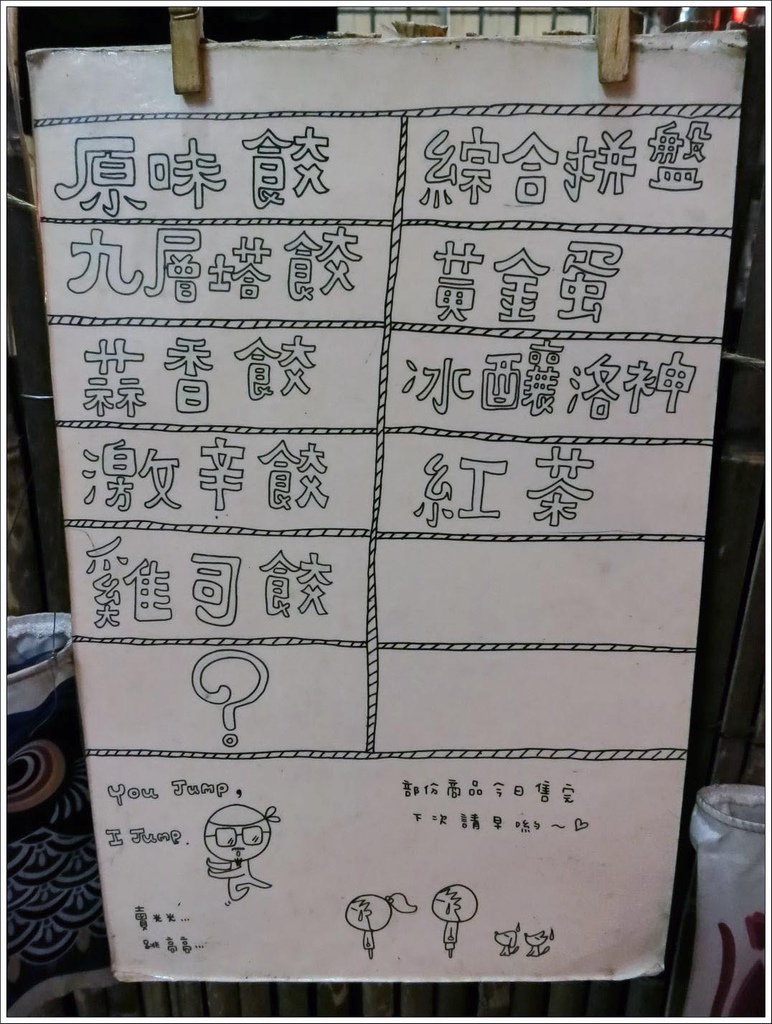 原味餃
九層塔餃
蒜香餃
激辛餃
雞司餃
?
綜合拼盤
黃金蛋
冰釀洛神
紅茶
You Jump,
I Jump.
賣光光...
跳高高...
部份商品今日售完
下次請早喲~♡